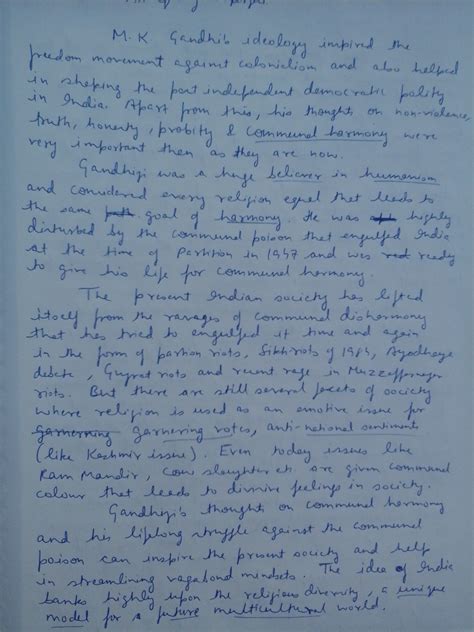 M. K. Gandhi's ideology inspired the
freedom movement against colonialism and also helped
in shaping the post independent democratic polity
in India. Apart from this, his thoughts on non-violence,
truth, honesty, probity & communal harmony were
very important then as they are now.
Gandhiji was a huge believer in humanism
and considered every religion equal that leads to
the same path goal of harmony. He was highly
disturbed by the communal poison that engulfed India
at the time of Partition in 1947 and was ready
to give his life for communal harmony.
The present Indian society has lifted
itself from the ravages of communal disharmony
that has tried to engulfed it time and again
in the form of partion riots, Sikh riots of 1984, Ayodhaya
debate, Gujrat riots and recent rage in Muzzeffernager
riots. But there are still several facets of society
where religion is used as an emotive issue for
garnerning garnering votes, anti-national sentiments
(like Kashmir issue). Even today issues like
Ram Mandir, Cow slaughter etc. are given communal
colour that leads to divisive feelings in society.
Gandhiji's thoughts on communal harmony
and his lifelong struggle against the communal
poison can inspire the present society and help
in streamlining vagabond mindsets. The idea of India
banks highly upon the religious diversity, a unique
model for a future multicultural world.